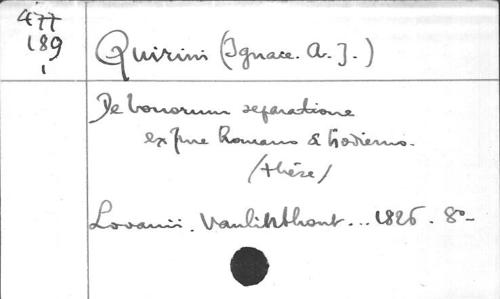 477
189
1
Quirini (Ignace. A. J.)
De bonorum separatione
ex jure Romano & hodierno.
(thèse)
Lovanii. Vanlinthout... 1826. 8º